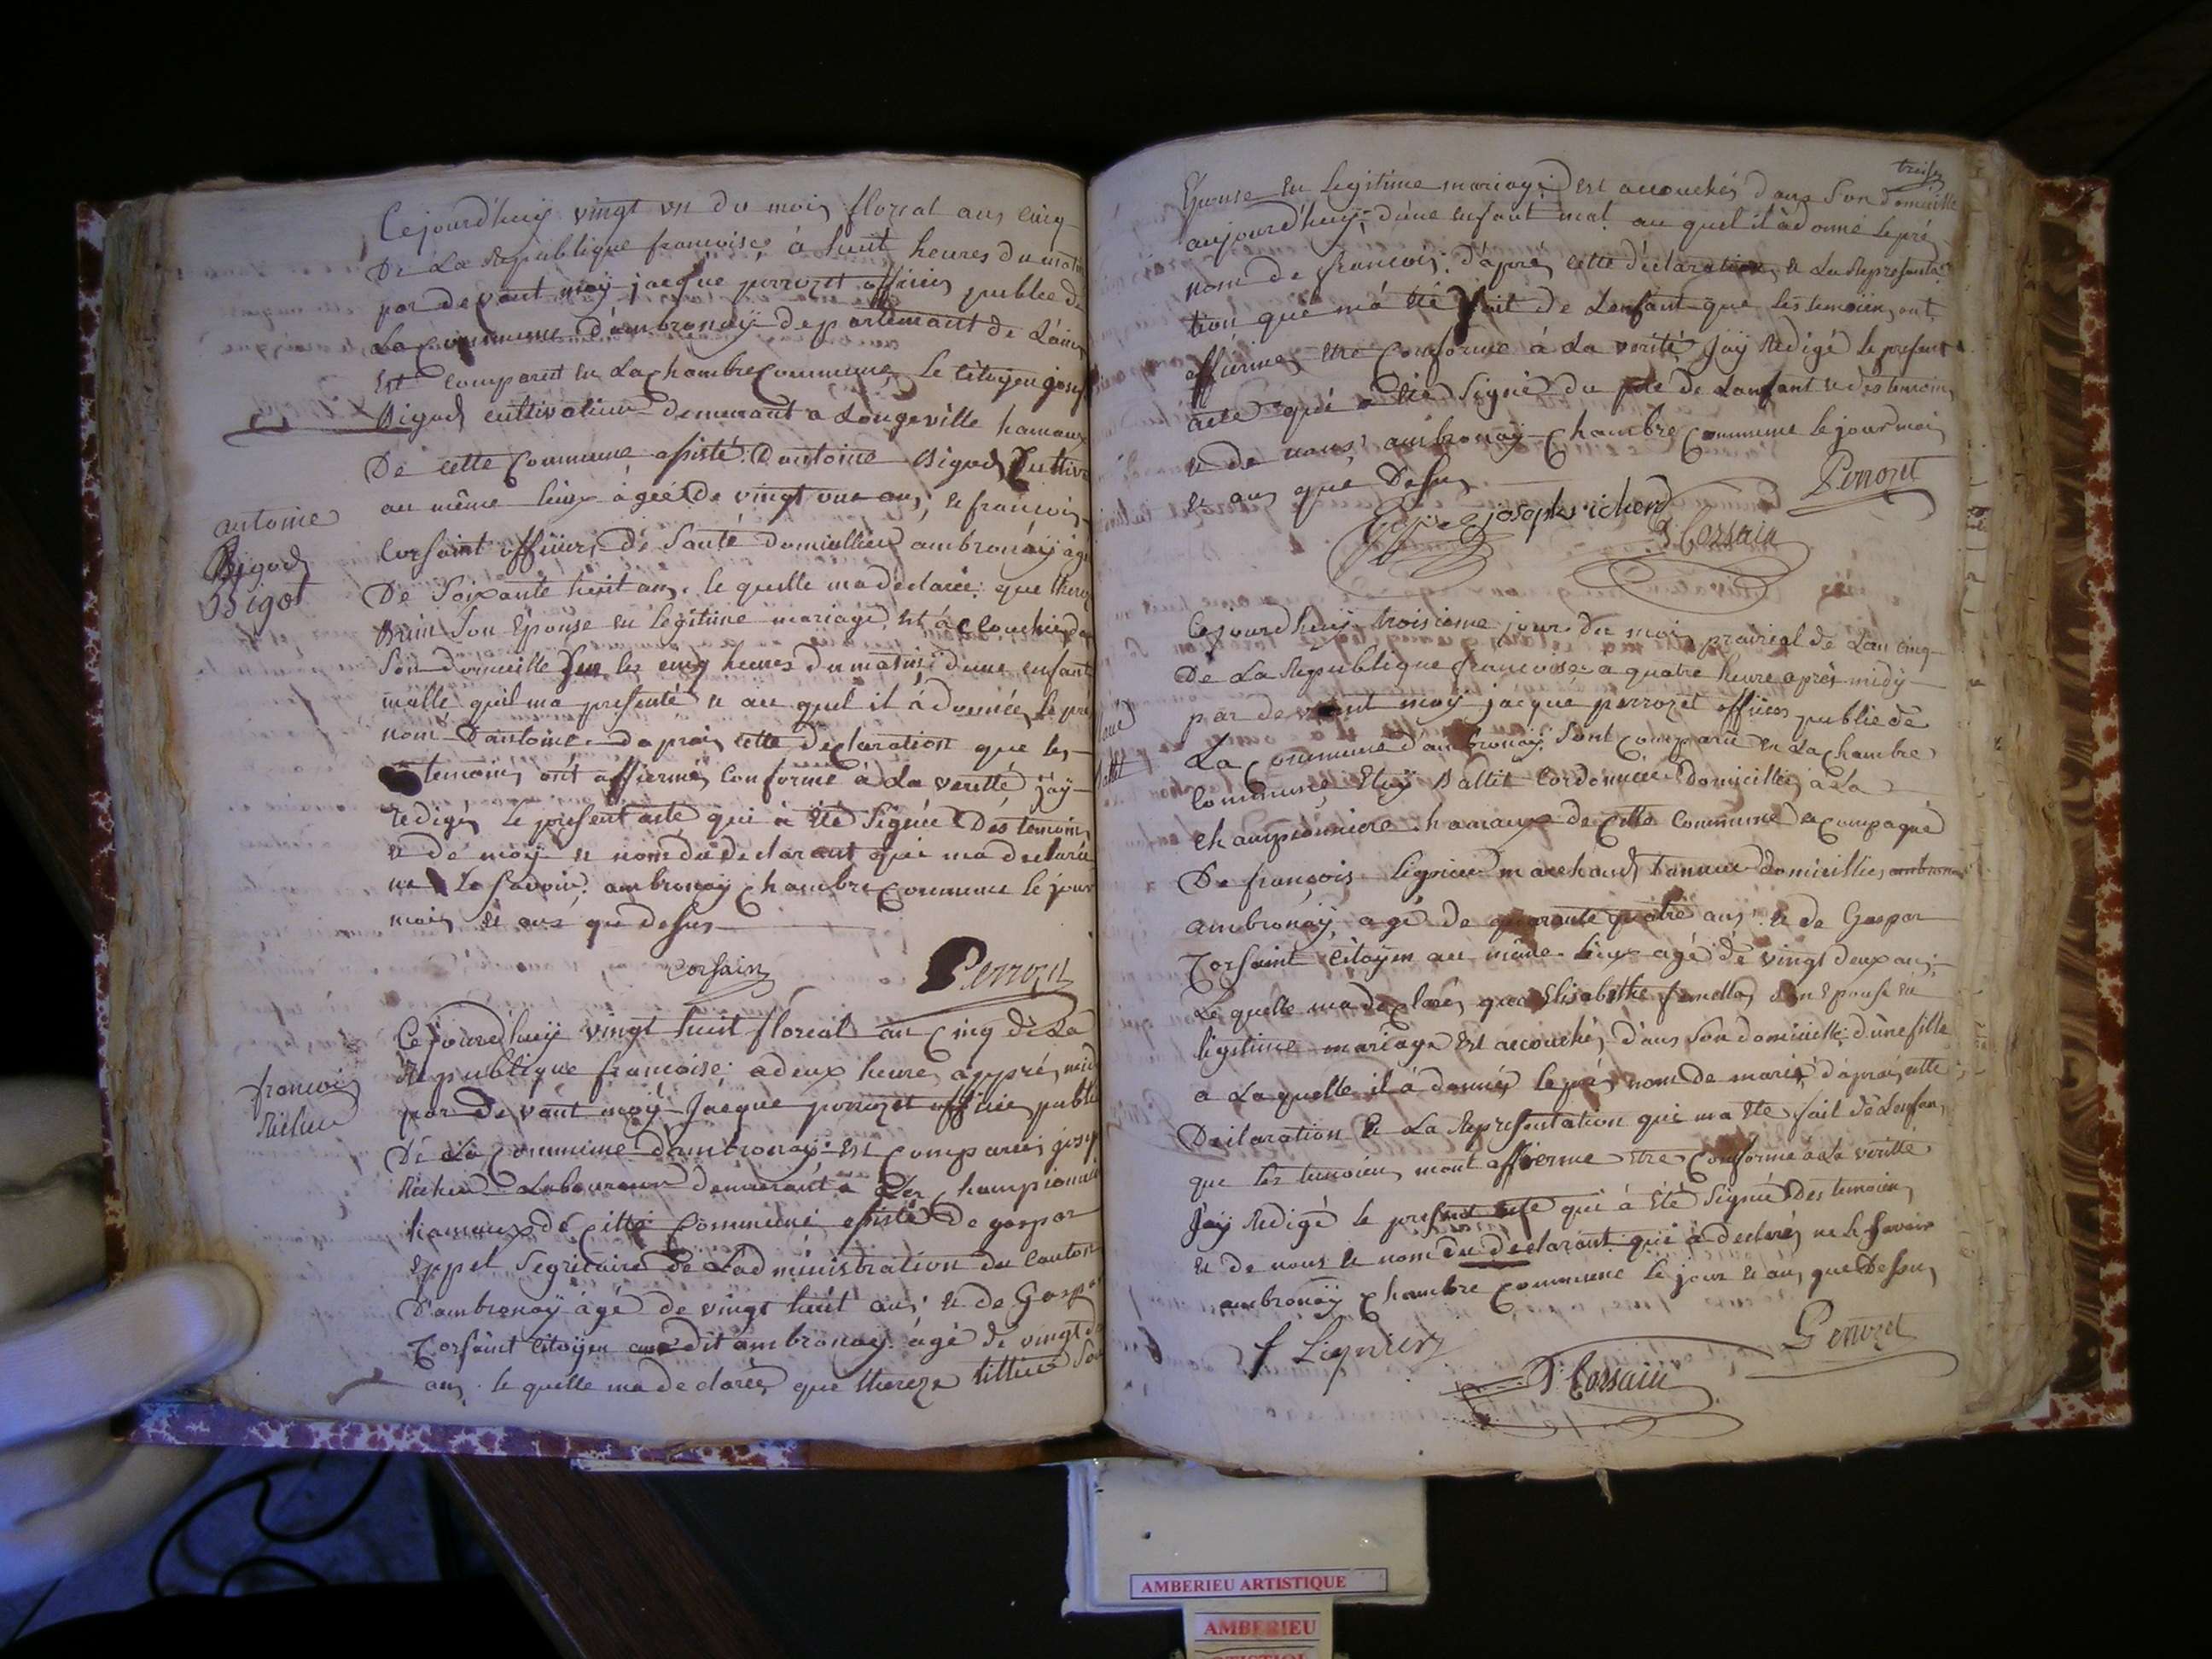 Cejourd'huÿ vingt un du mois floreal ans cinq
De La Republique francoise, à huit heures du matin
par devant moÿ jacque perrozet officier publee de
La Commune d'ambronaÿ departemant de L'ain
Est comparut en La chambre Commune Le Citoyen josep
Bigod cultivatieur demeurant a Longeville hameaux
De cette Commune asisté D'antoine Bigod Cultiva
au même lieux àgeé De vingt une ans, et francois
Corsaint officier De Santé domicillier ambronaÿ àgé
De Soixante huit ans. le quelle ma declaréé que therez
Brun Son Epouse en legitime mariage, est àcclouchée dan
Son domicille sur les cinq heures du matin d'une enfant
malle quil ma presenté et au quel il à donnée le pré
nom D'antoine. daprais cette declaration que les
temoins ont affiermés Conforme à La veritté jaÿ
redigés Le present acte qui à été Signée Des temoins
et de moÿ et nom du declarant qui ma declarée
ne Le Savoir. ambronaÿ chambre Commune le jour
mois et ans que desus
antoine
Bigod
Bigot
Corsain
Perrozet
Cejourd'huÿ vingt huit floréal an Cinq de La
Republique francoise adeux heures apprés midÿ
par Devant moÿ Jacque perrozet officie public
De La Commune d'ambronaÿ est Comparées josep
Richerd Laboureur demeurant à La Championniere
hameaux de Cette Commune asisté De gaspar
Eppel Segretaire de L'administration du Canton
D'ambronaÿ àgé de vingt huit ans, et de Gaspar
Corsaint Citoÿen audit ambronaÿ. àgé de vingt d
ans. le quelle ma declarée que thereze Son
francois
treise
Epouse en legitime mariage est accouchés dans Son domicille
aujourd'huÿ, d'une enfant mal. au quel il à donné le pré
nom de francois. d'aprés cette déclaration et La Representa
tion que ma été fait de L'enfant que les temoien ont
affiermes être Conforme à La verité Jaÿ Redigé le present
acte qui a été Signé du pere de L'enfant et des temoins
et de nous, ambronaÿ chambre Commune le jour mois
et ans que Desus
joseph richerd
Perrozet
G Corsain
Cejourdhuÿ troisieme jour du mois prairéal de L'an cinq
De La Republique francoise a quatre heure après midÿ
par devant moÿ jacque perrozet officier publie de
La Commune d'ambronaÿ. Sont Comparu en La chambre
Commune, Eloÿ Ballet Cordonnier domicillés à La
championniere hameaux de Cette Commune accompagné
De francois Ligniere marchand tanneur domicillies ambrona
ambronaÿ, agé de quarante quatre ans. et de Gaspar
Corsaint Citoÿen au même lieux agé de vingt deux ans
Le quelle ma déclaré, que Elisabethe femellas Son Epouse en
légitime mariage est accouchés, dans Son domicille d'une fille
a Laquelle il à donnés le pré nom de marie, d'aprais cette
Déclaration et La Representation qui ma été fait de L'enfan,
que les temoien, mont affierme être Conforme à La veritté
Jaÿ Redigé le present acte qui à été Signé Des temoien,
et de nous et nom du déclarant qui à declarés ne le Savoir
ambronaÿ chambre Commune le jour et an, que Desus,
f Lignier
G Corsain
Perrozet
AMBERIEU ARTISTIQUE
AMBERIEU
ARTISTIQU